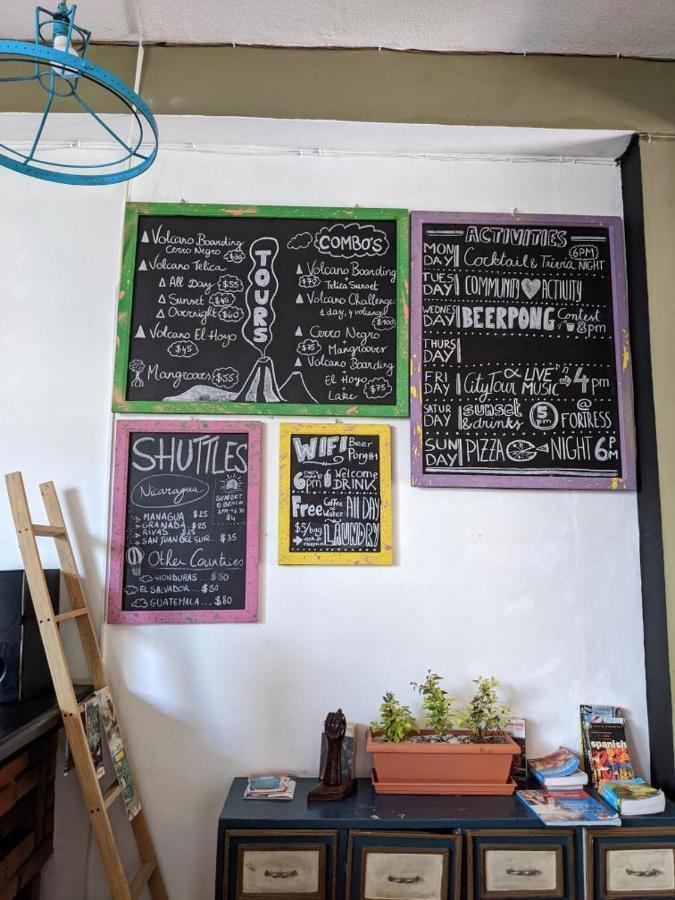 Volcano Boarding
Cerro Negro $30
Volcano Telica
All Day $55
Sunset $45
Overnight $60
Volcano El Hoyo
$45
Mangroves $55
TOURS
COMBO'S
Volcano Boarding
+
$70 Telica Sunset
Volcano Challenge:
1 day, 4 volcanoes
$100
Cerro Negro
+
$75 Mangroves
Volcano Boarding
+
El Hoyo
+
Lake $75
ACTIVITIES
MON
DAY Cocktail & Trivia NIGHT 6PM
TUES
DAY COMMUNITY ACTIVITY
WEDNES
DAY BEERPONG Contest
8pm
THURS
DAY
FRI
DAY City Tour & LIVE MUSIC 4pm
SATUR
DAY sunset & drinks 5pm @ FORTRESS
SUN
DAY PIZZA NIGHT 6PM
SHUTTLES
Nicaragua
SUNSET
& BEACH
$4
MANAGUA $25
GRANADA $25
RIVAS $35
SAN JUAN DEL SUR... $35
Other Countries
HONDURAS... $50
EL SALVADOR... $50
GUATEMALA... $80
WIFI Beer
6pm Welcome
DRINK
Free Coffee
Water ALL DAY
$5/bag
LAUNDRY
spanish